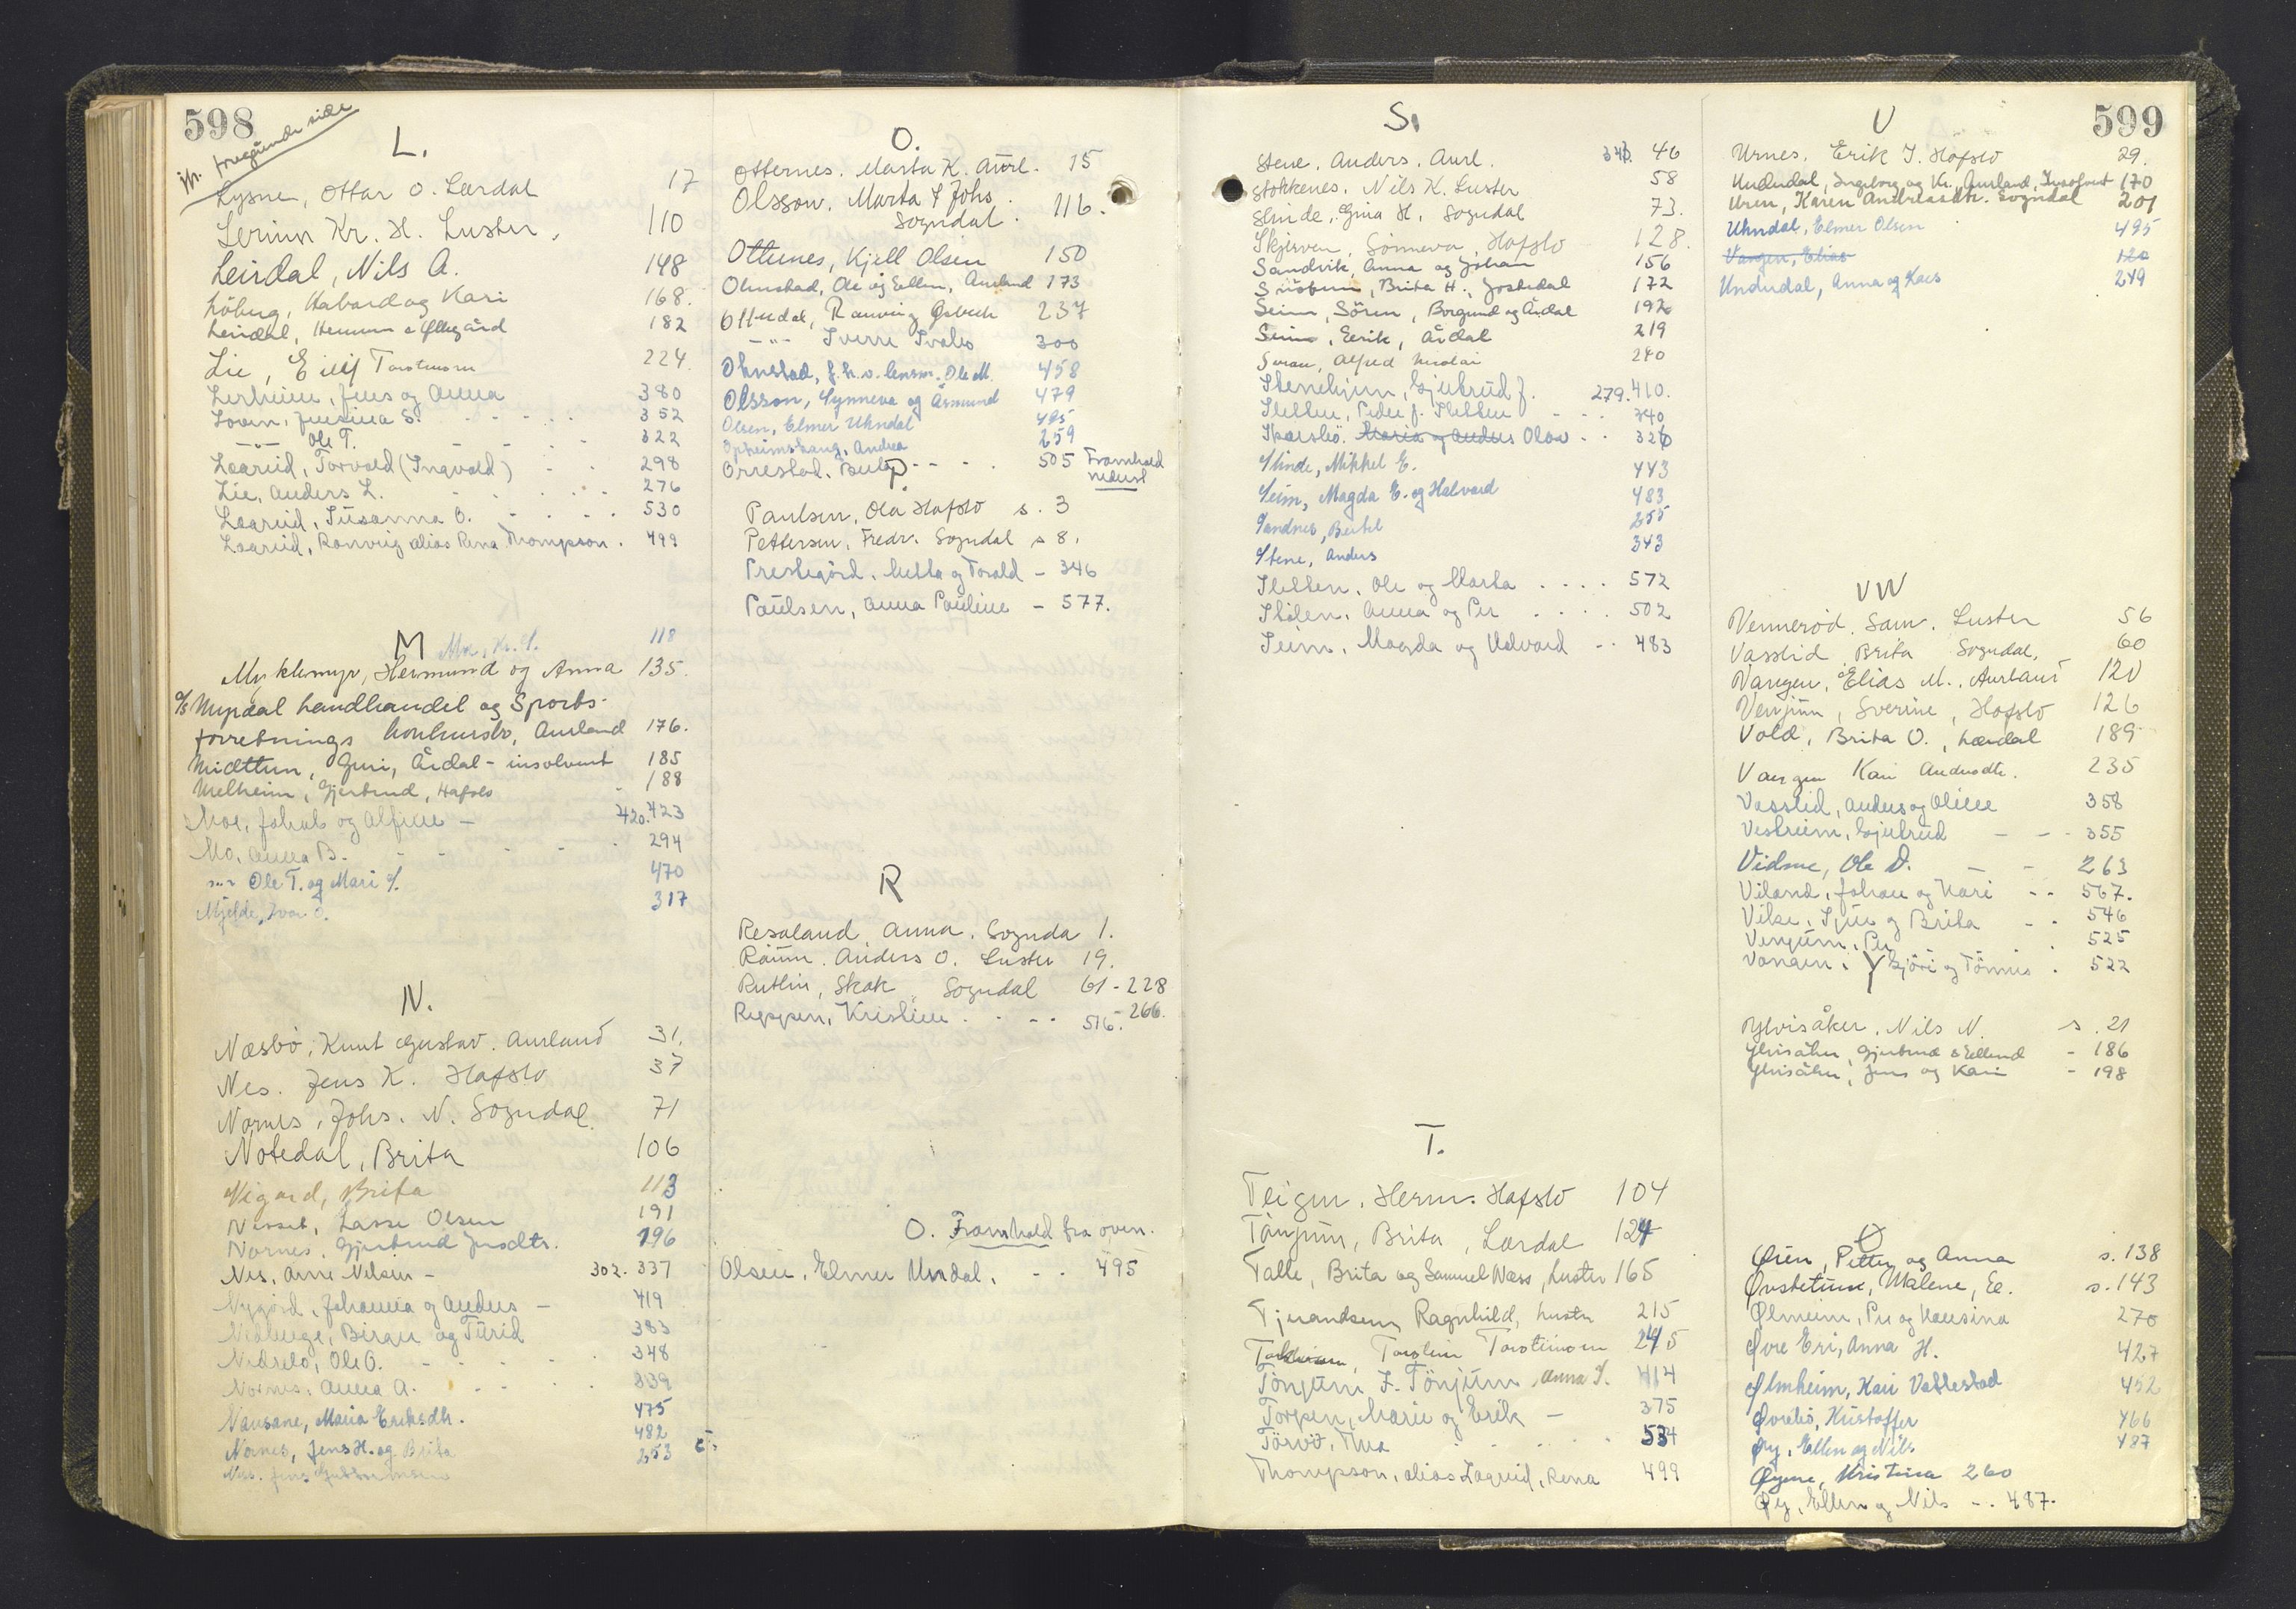 598
jfr. foregående side
L.
Lysne, Ottar O. Lærdal 17
Lerum Kr. H. Luster, 110
Leirdal, Nils A. 148
Løberg, Havard og Kari 168.
Leirdal, 182
Lie, Eilif Torsteinson 224.
Lerheim, Jens og Anna 380
Loven, S. 352
-"- Ole T. 322
Laarud, Torvald (Ingvald) 298
Lie, Anders L. 276
Laarud, Susanna O. 530
Laarud, Ranveig alias Rena Thompson. 499
M
Mo, Kr. S. 118
Myklemyr, Hermund og Anna 135.
A/S Myrdal landhandel og Sports-
forretnings konkursbo, Aurland 176.
Midttun, Guri, Årdal - insolvent 185
Melheim, Gjertrud, Hafslo 188
Moe, Johan og Alfine - 420. 423
Mo, Anna B. 294
-"- Ole T. og Mari S. 470
Mjelde, Ivar O. 317
N.
Næsbø, Knut Gustav. Aurland 31.
Nes. Jens K. Hafslo 37
Nornes, Johs. N. Sogndal. 71
Notedal, Brita 106
Nigard, Brita 113
Nesset, Lasse Olsen 191
Nornes, Gjertrud Jensdtr. 196
Nes, Arne Nelsen - 302. 337
Nygård, Johanna og Anders - 419
Nedberge, Birger og Turid 383
Nedrelo, Ole O. 348
Nornes, Anna A. 339
Nausane, Maria Eriksdtr. 475
Nornes, Jens H. og Brita 482
Nes. Jens 253
O.
Otternes. Marta K. Aurl. 15
Olsson. Marta & Johs.
Sogndal. 116.
Otternes, Kjell Olsen 150
Ohnstad, Ole og Ellen, Aurland 173
Offerdal, Ranveig 237
-"- Sverre 300
Ohnstad, f.h.v. lensm. Ole M. 458
Olsson, Synneva og Åsmund 479
Olsen, Elmer Uhndal 495
Opheimshaug, Andrea 259
Orrestad, 505 Framhald nedust
P
Paulsen, Ola Hafslo s. 3
Pettersen, Fredr. Sogndal s 8.
Prestegård, Mella og Torald - 346
Paulsen, Anna Pauline - 577.
R
Resaland, Anna, Sognda 1.
Raum. Anders O. Luster 19.
Rutlin, Skak, Sogndal 61 - 228
Reppen, Kristine 516. 266.
O. Framhald fra oven.
Olsen, Elmer Undal, 495
S.
Stene, Anders. Aurl. 343. 46
Stokkenes. Nils K. Luster 58
Slinde, Gina H. Sogndal 73.
Skjerven, Sønneva, Hafslo 128.
Sandvik, Anna og Johan 156
Snøtun, Brita H., Jostedal 172
Seim, Søren, Borgund og Årdal 192
Seim, Eerik, Årdal 219
Svean, Alfred Nicolai 240
Stenehjem, Gjertrud J. 279. 410.
Sletten, Peder J. Sletten 340
Skarsbø. Maria og Anders Olav 326
Slinde, Mikkel E. 443
Seim, Magda E. og Halvard 483
Sandnes, Bertil 255
Stene, Anders 343
Sletten, Ole og Marta 572
Stølen, Anna og Per 502
Seim, Magda og Halvard 483
T.
Teigen, Herm. Hafslo 104
Tønjum, Brita, Lærdal 124
Talle, Brita og Samuel Næss, Luster 165
Tjerandsen, Ragnhild, Luster 215
Torstein Torsteinson 245
Tønjum J. Tønjum, Anna S. 414
Torpen, Marie og Erik - 375
Tørvø, Thea 534
Thompson, alias Laarud, Rena 499
599
U
Urnes, Erik J. Hafslo 29.
Underdal, Ingeborg og Kr. Aurland, Insolvent 170
Uren, Karen Andreasdtr. Sogndal 201
Uhndal, Elmer Olsen 495
Vangen, Elias 120
Underdal, Anna og Lars 249
VW
Vennerød. Sam. Luster 56
Vasslid, Brita Sogndal, 60
Vangen, Elias M., Aurland 120
Venjum, Sverine, Hafslo 126
Vold, Brita O., Lærdal 189
Vangen Kari Andersdtr. 235
Vasslid, Anders og Oline 358
Vestreim, Gjertrud 355
Vidme, Ole D. 263
Viland, Johan og Kari 567.
Vike, og Brita 546
Venjum, Per 525
Vangen, Gjøri og Tönnes 522
Y
Ylvisåker, Nils N. s. 21
Ylvisåker, Gjertrud & Ellend - 186
Ylvisåker, Jens og Kari - 198
Ø
Øien, Petter og Anna s. 138
Øvstetun, Malene, El. s. 143
Ølmeim, Per og Hansina 270
Øvre Eri, Anna H. 427
Ølmheim, Kari Vallestad 452
Øvrebø, Kristoffer 466
Øy, Ellen og Nils 487
Øyene, Kristina 260
Øy, Ellen og Nils - 487.